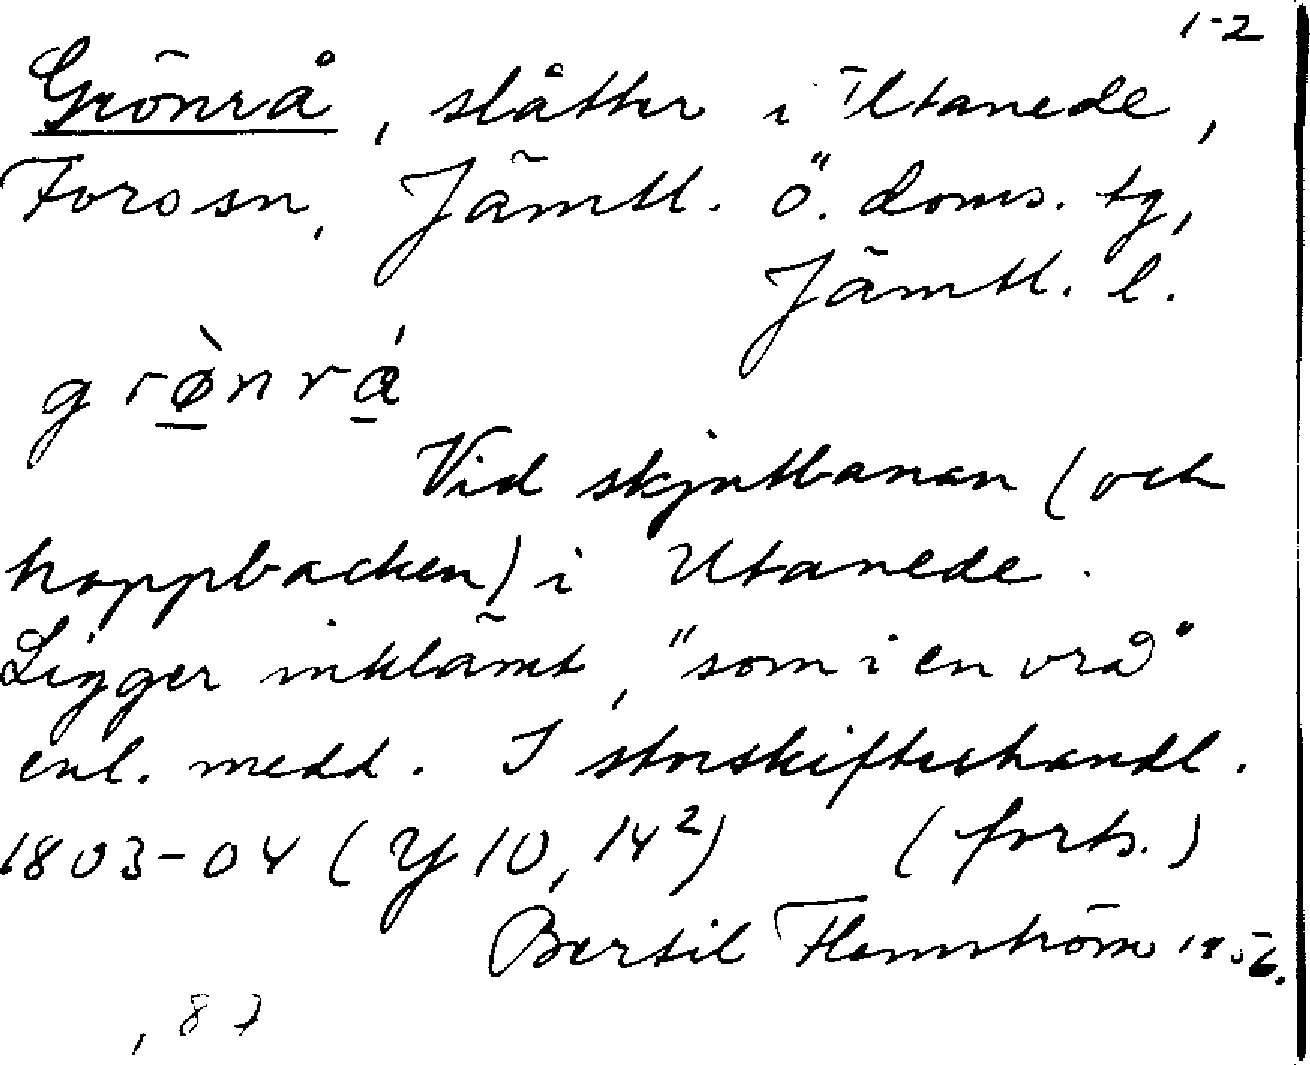 1-2
Grönrå, slåtter i Utanede,
Fors sn, Jämtl. ö. doms. tg,
Jämtl. l.
grø̀nrá
Vid skjutbanan (och
hoppbacken) i Utanede.
Ligger inklämt, "som i en vrå"
enl. medd. I storskifteshandl.
1803-04 (Y 10, 14²) (forts.)
Bertil Flemström 1956.